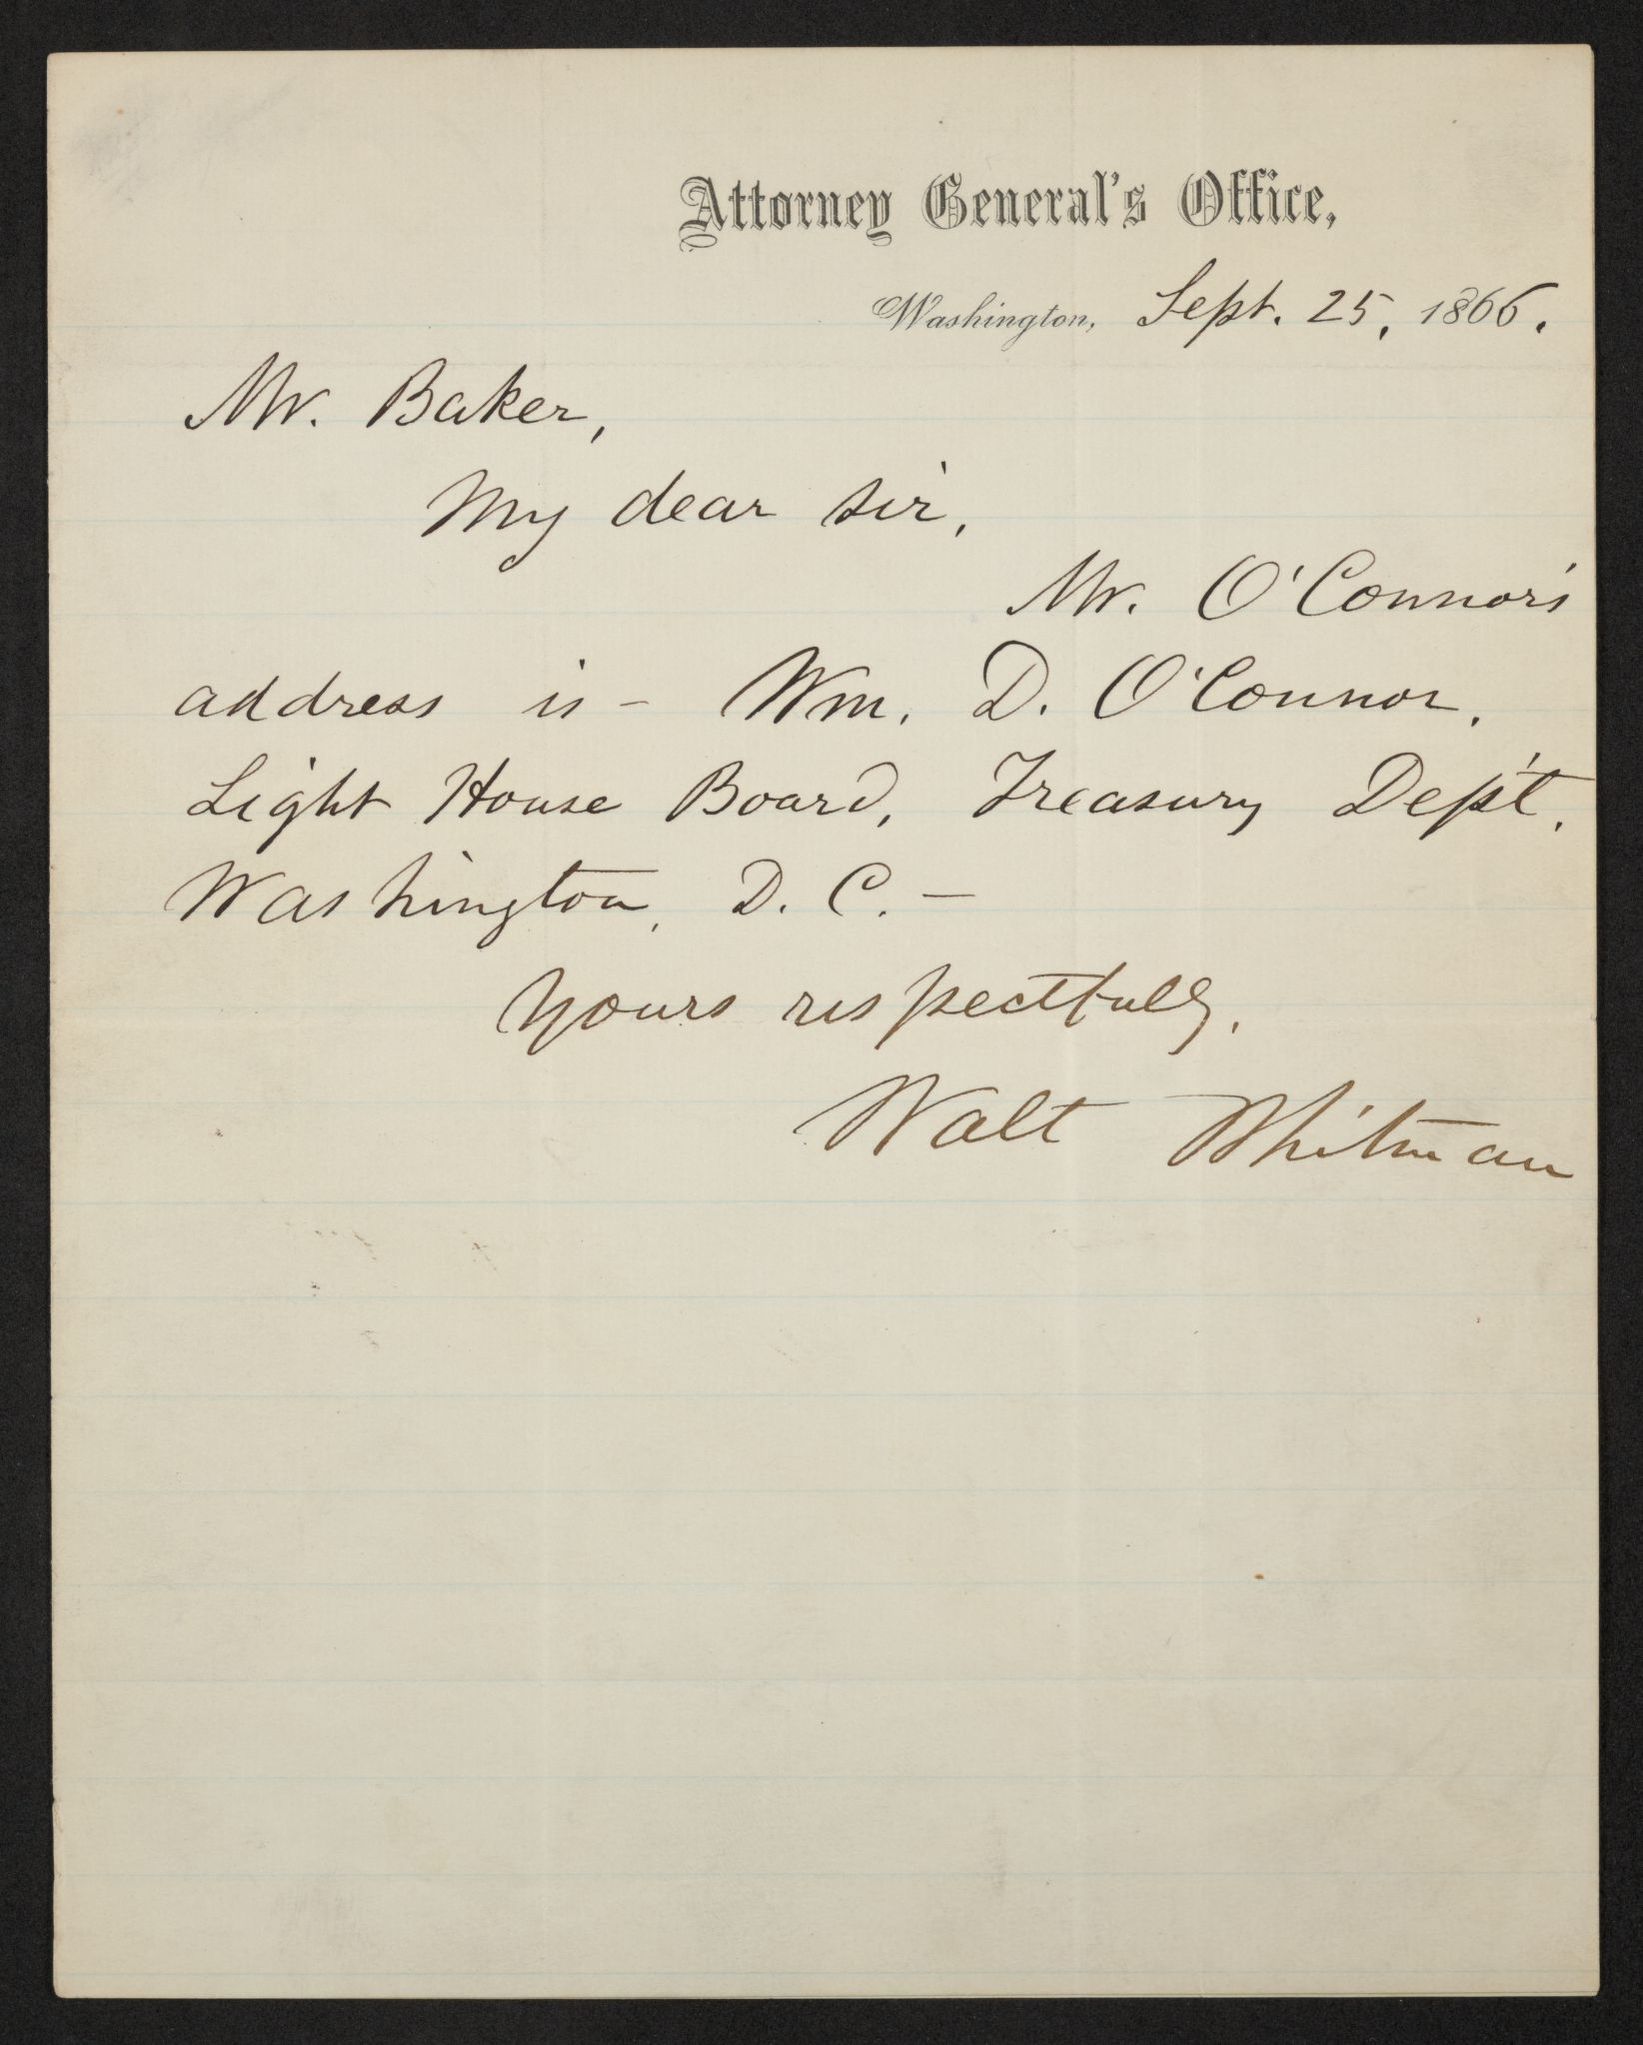 Attorney General's Office,
Washington, Sept. 25, 1866.
Mr. Baker,
My dear sir,
Mr. O'Connor's
address is – Wm. D. O'Connor,
Light House Board, Treasury Dep't,
Washington, D. C. –
Yours respectfully,
Walt Whitman